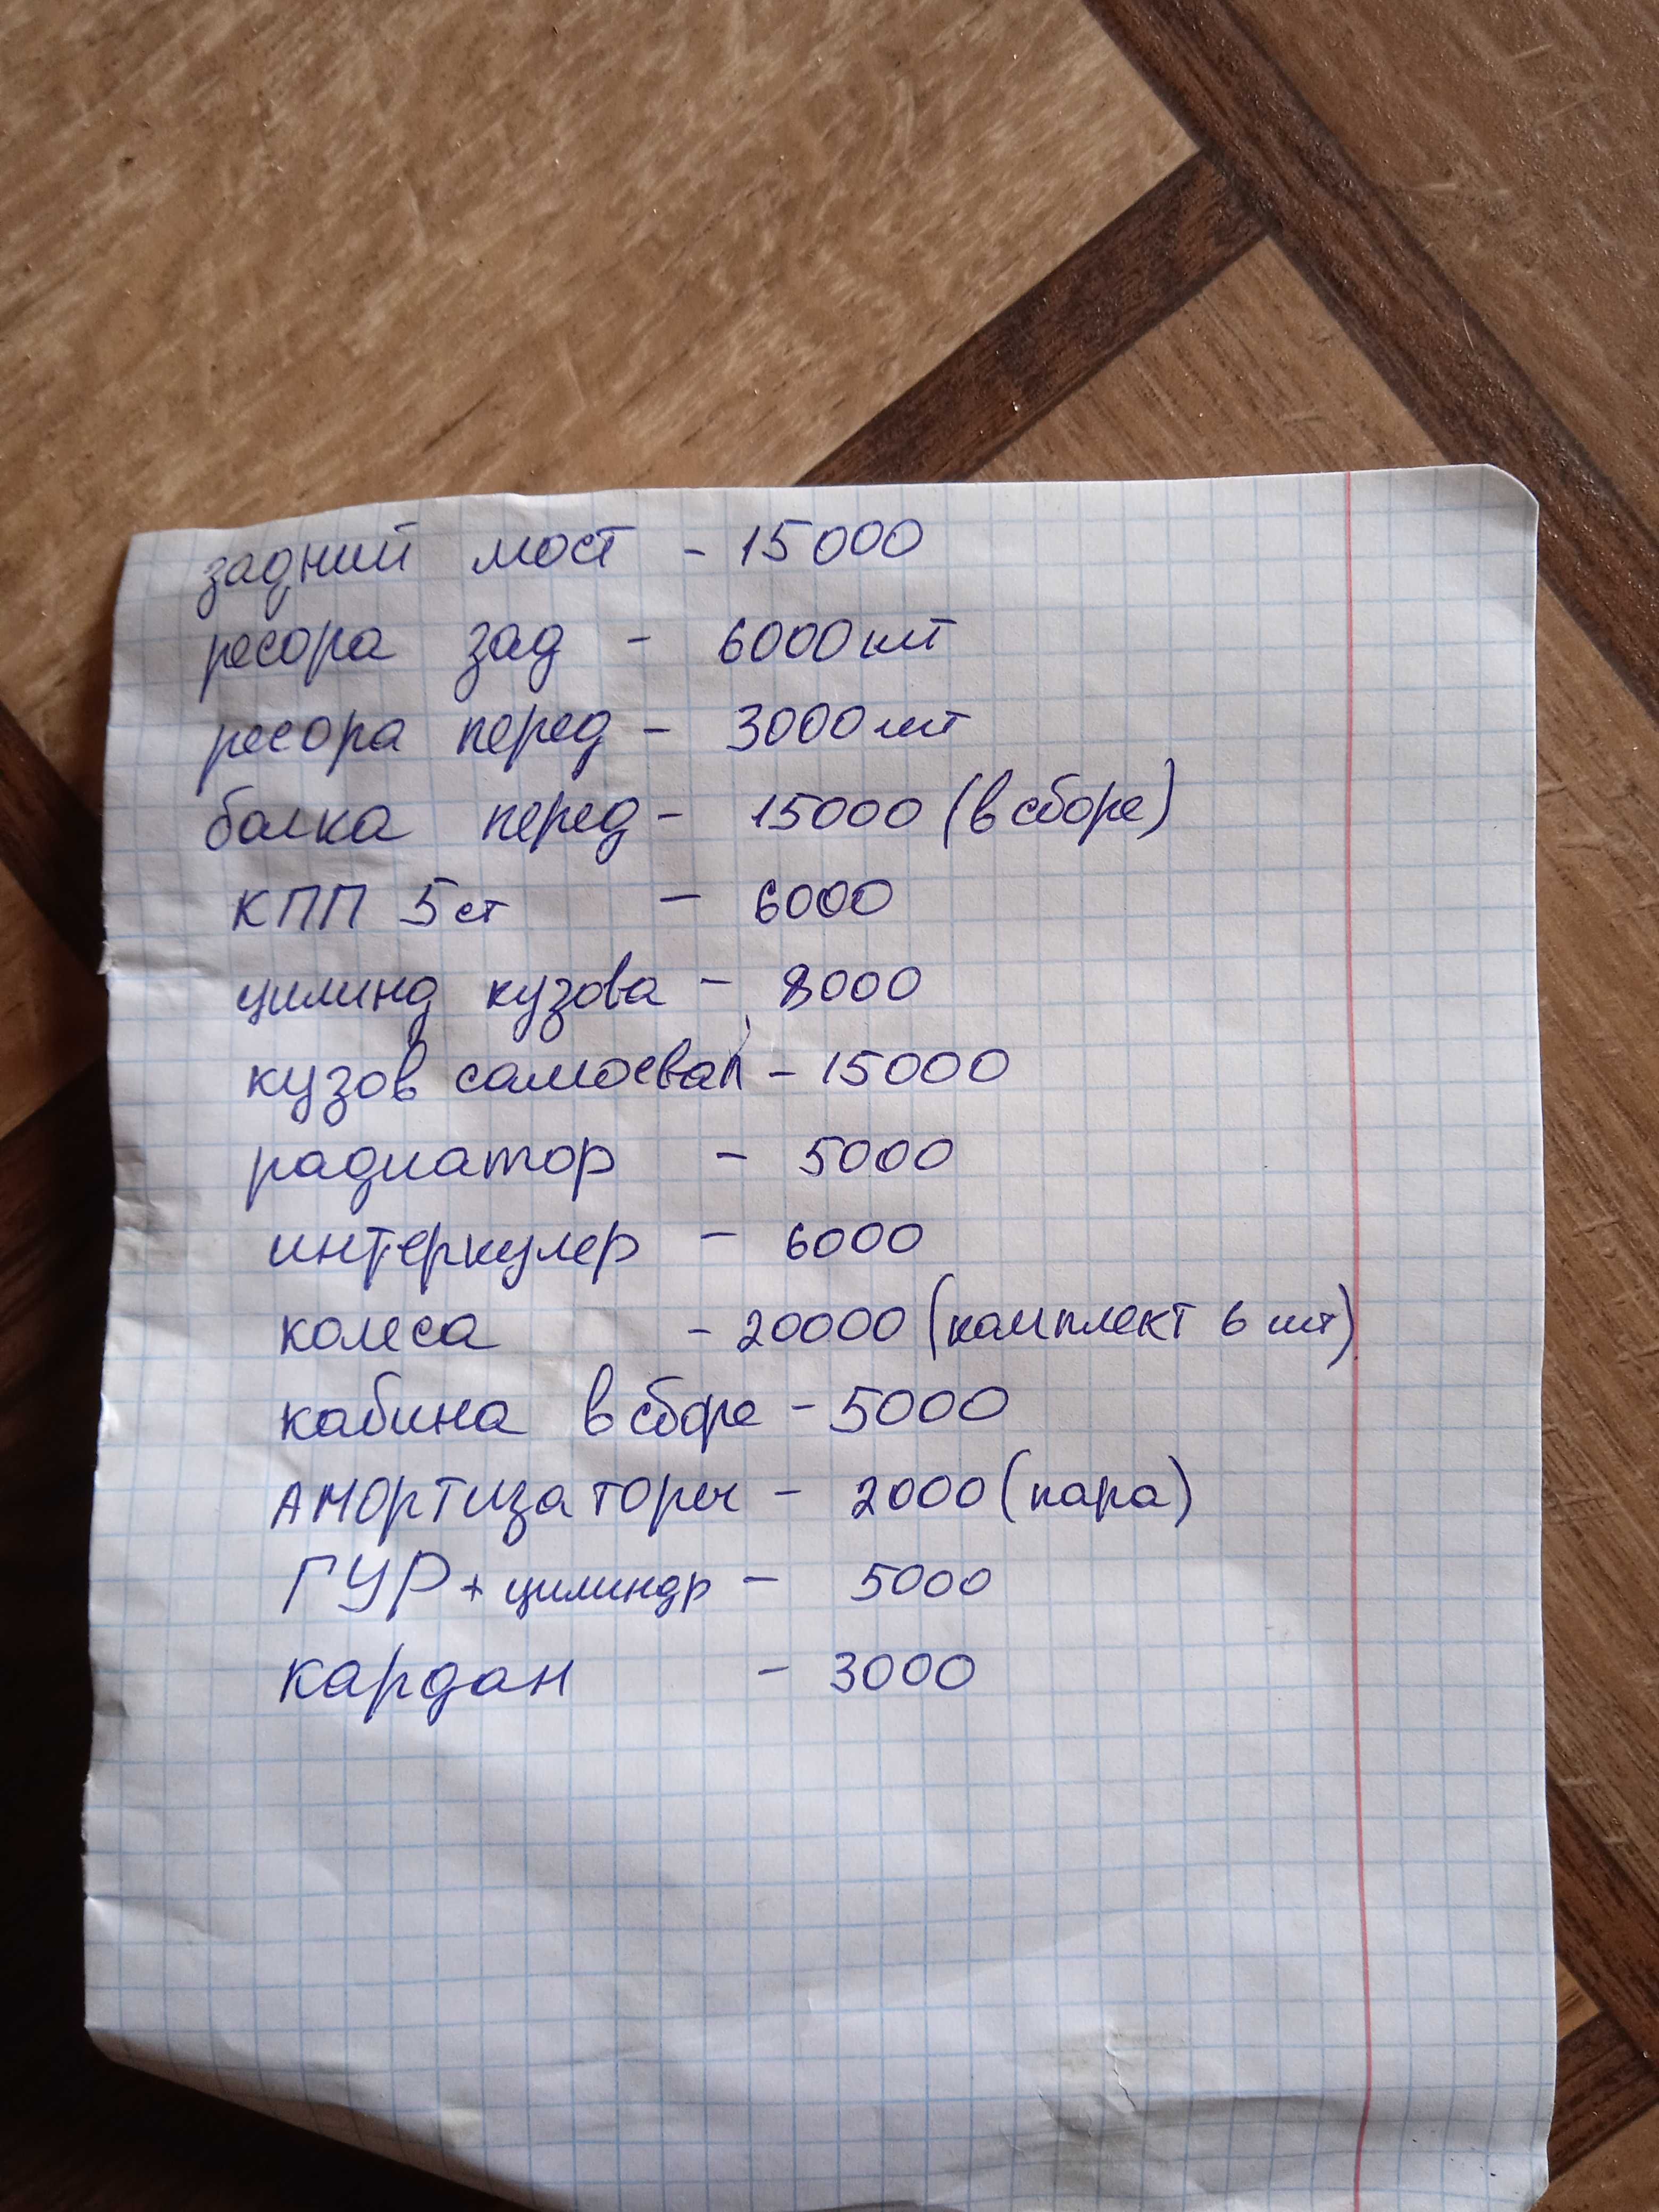 задний мост - 15000
ресора зад - 6000 шт
ресора перед - 3000 шт
балка перед - 15000 (в сборе)
КПП 5 ст - 6000
цилинд кузова - 8000
кузов самосвал - 15000
радиатор - 5000
интеркулер - 6000
колеса - 20000 (комплект 6 шт)
кабина в сборе - 5000
Амортизаторы - 2000 (пара)
ГУР + цилиндр - 5000
кардан - 3000